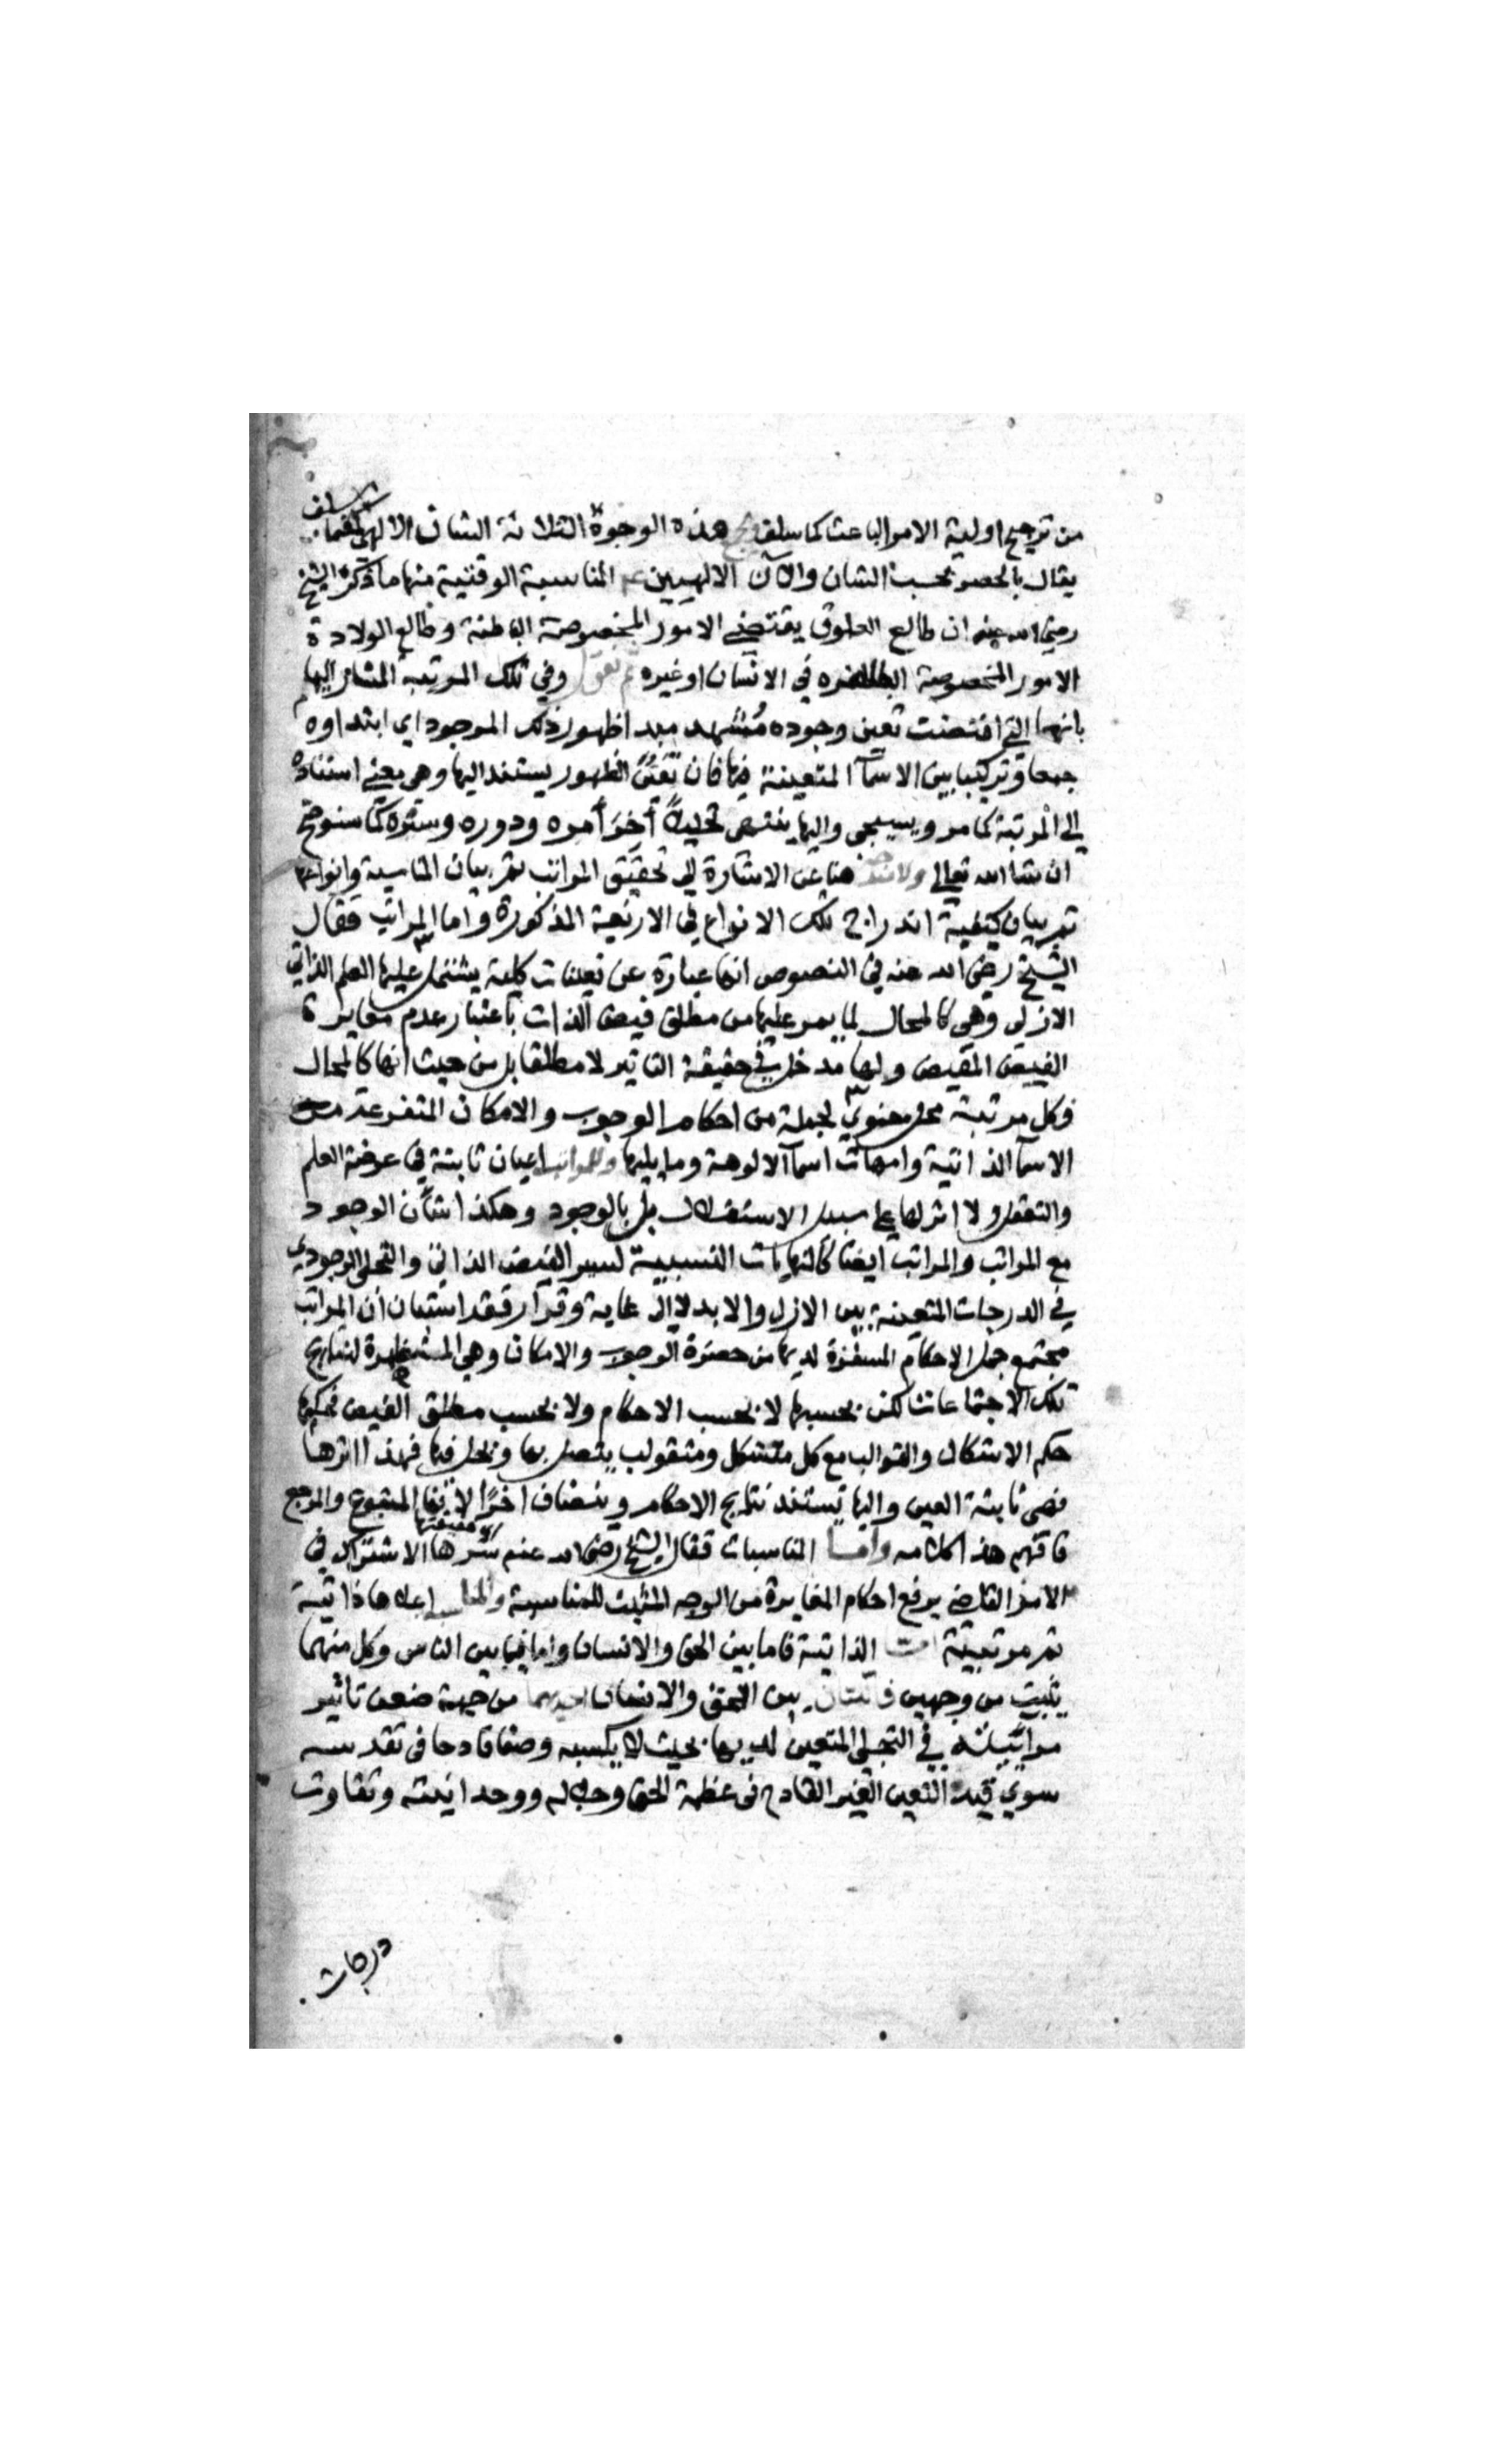 من ترجيح اولية الامر الباعث كما سلف هذه الوجوه الثلاثة الشان الالهي كما سلف فما
يقال بالحصر بحسب الشان والآن الالهيين المناسبة الوقتية منها ما ذكره الشيخ
رضي الله عنه ان طالع العلوق يقتضي الامور المخصوصة الباطنة وطالع الولادة
الامور المخصوصة الظاهره في الانسان او غيره ثم نقول وفي تلك المرتبة المشار اليها
بانها التي اقتضت تعين وجوده مبدا ظهور ذلك الموجود اي ابتداوه
جمعا وتركيبا بين الاسمآ المتعينة فيها فان تعين الظهور يستند اليها وهي معنى استناده
الى المرتبة كما مر وسيجي واليها ينتهي آخر أمره ودوره وستره كما سنوضح
ان شا الله تعالى ولا هنا عن الاشارة الى تحقيق المراتب ثم بيان المناسبة وانواعها
ثم بيان كيفية اندراج تلك الانواع في الاربعة المذكورة واما المراتب فقال
الشيخ رضي الله عنه في النصوص انها عبارة عن تعينات كلية يشتمل عليها العلم الذاتي
الازلي وهي كالمحال لما يمر عليها من مطلق فيض الذات باعتبار عدم مغايرة
الفيض المفيض ولها مدخل في حقيقة التاثير لا مطلقا بل من حيث انها كالمحال
فكل مرتبة محل معنوي لجملة من احكام الوجوب والامكان المتفرعة من
الاسمآ الذاتية وامهات اسمآ الالوهة وما يليها وللمراتب اعيان ثابتة في عرضة العلم
والتعقل ولا اثر لها على سبيل الاستقلال بل بالوجود وهكذا شان الوجود
مع المراتب والمراتب ايضا كالنهايات النسبية لسير الفيض الذاتي والتجلي الوجودي
في الدرجات المتعينة بين الازل والابد لا الى غاية وقرار فقد استبان ان المراتب
مجتمع جمل الاحكام المستقرة لديها من حضرة الوجوب والامكان وهي المظهرة لنتايج
تلك الاجتماعات لكن بحسبها لا بحسب الاحكام ولا بحسب مطلق الفيض فحكمها
حكم الاشكال والقوالب مع كل متشكل ومتقولب يتصل بها ويحل فيها فهذا اثرها
فهي ثابتة العين واليها تستند نتايج الاحكام وينضاف اخرا لانها المتبوع والمرجع
فافهم هذا كلامه واما المناسبات فقال الشيخ رضي الله عنه سرها الاشتراك في
الامر القاضي برفع احكام المغايرة من الوجه المثبت للمناسبة اعلاها ذاتية
ثم مرتبية اما الذاتية فاما بين الحق والانسان واما فيما بين الناس وكل منهما
يثبت من وجهين بين الحق والانسان من جهة ضعف تاثير
مراتبيته في التجلي المتعين لديها بحيث لا يكسبه وصفا قادحا في تقدسه
سوى قيد التعين الغير القادح في عظمة الحق وجلاله ووحدانيته وتفاوت
درجات